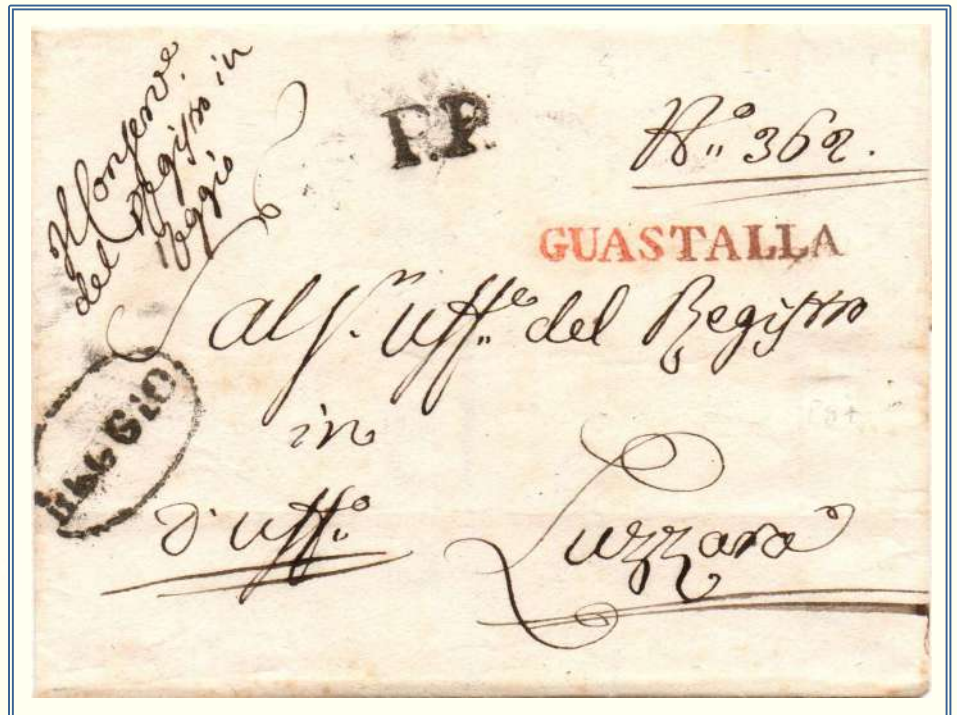 Il Conserv.e
del Registro in
Reggio
P.P.
N.º 362.
GUASTALLA
al S.r Uff.e del Registro
REGGIO
in
d'Uff.º
Luzzara